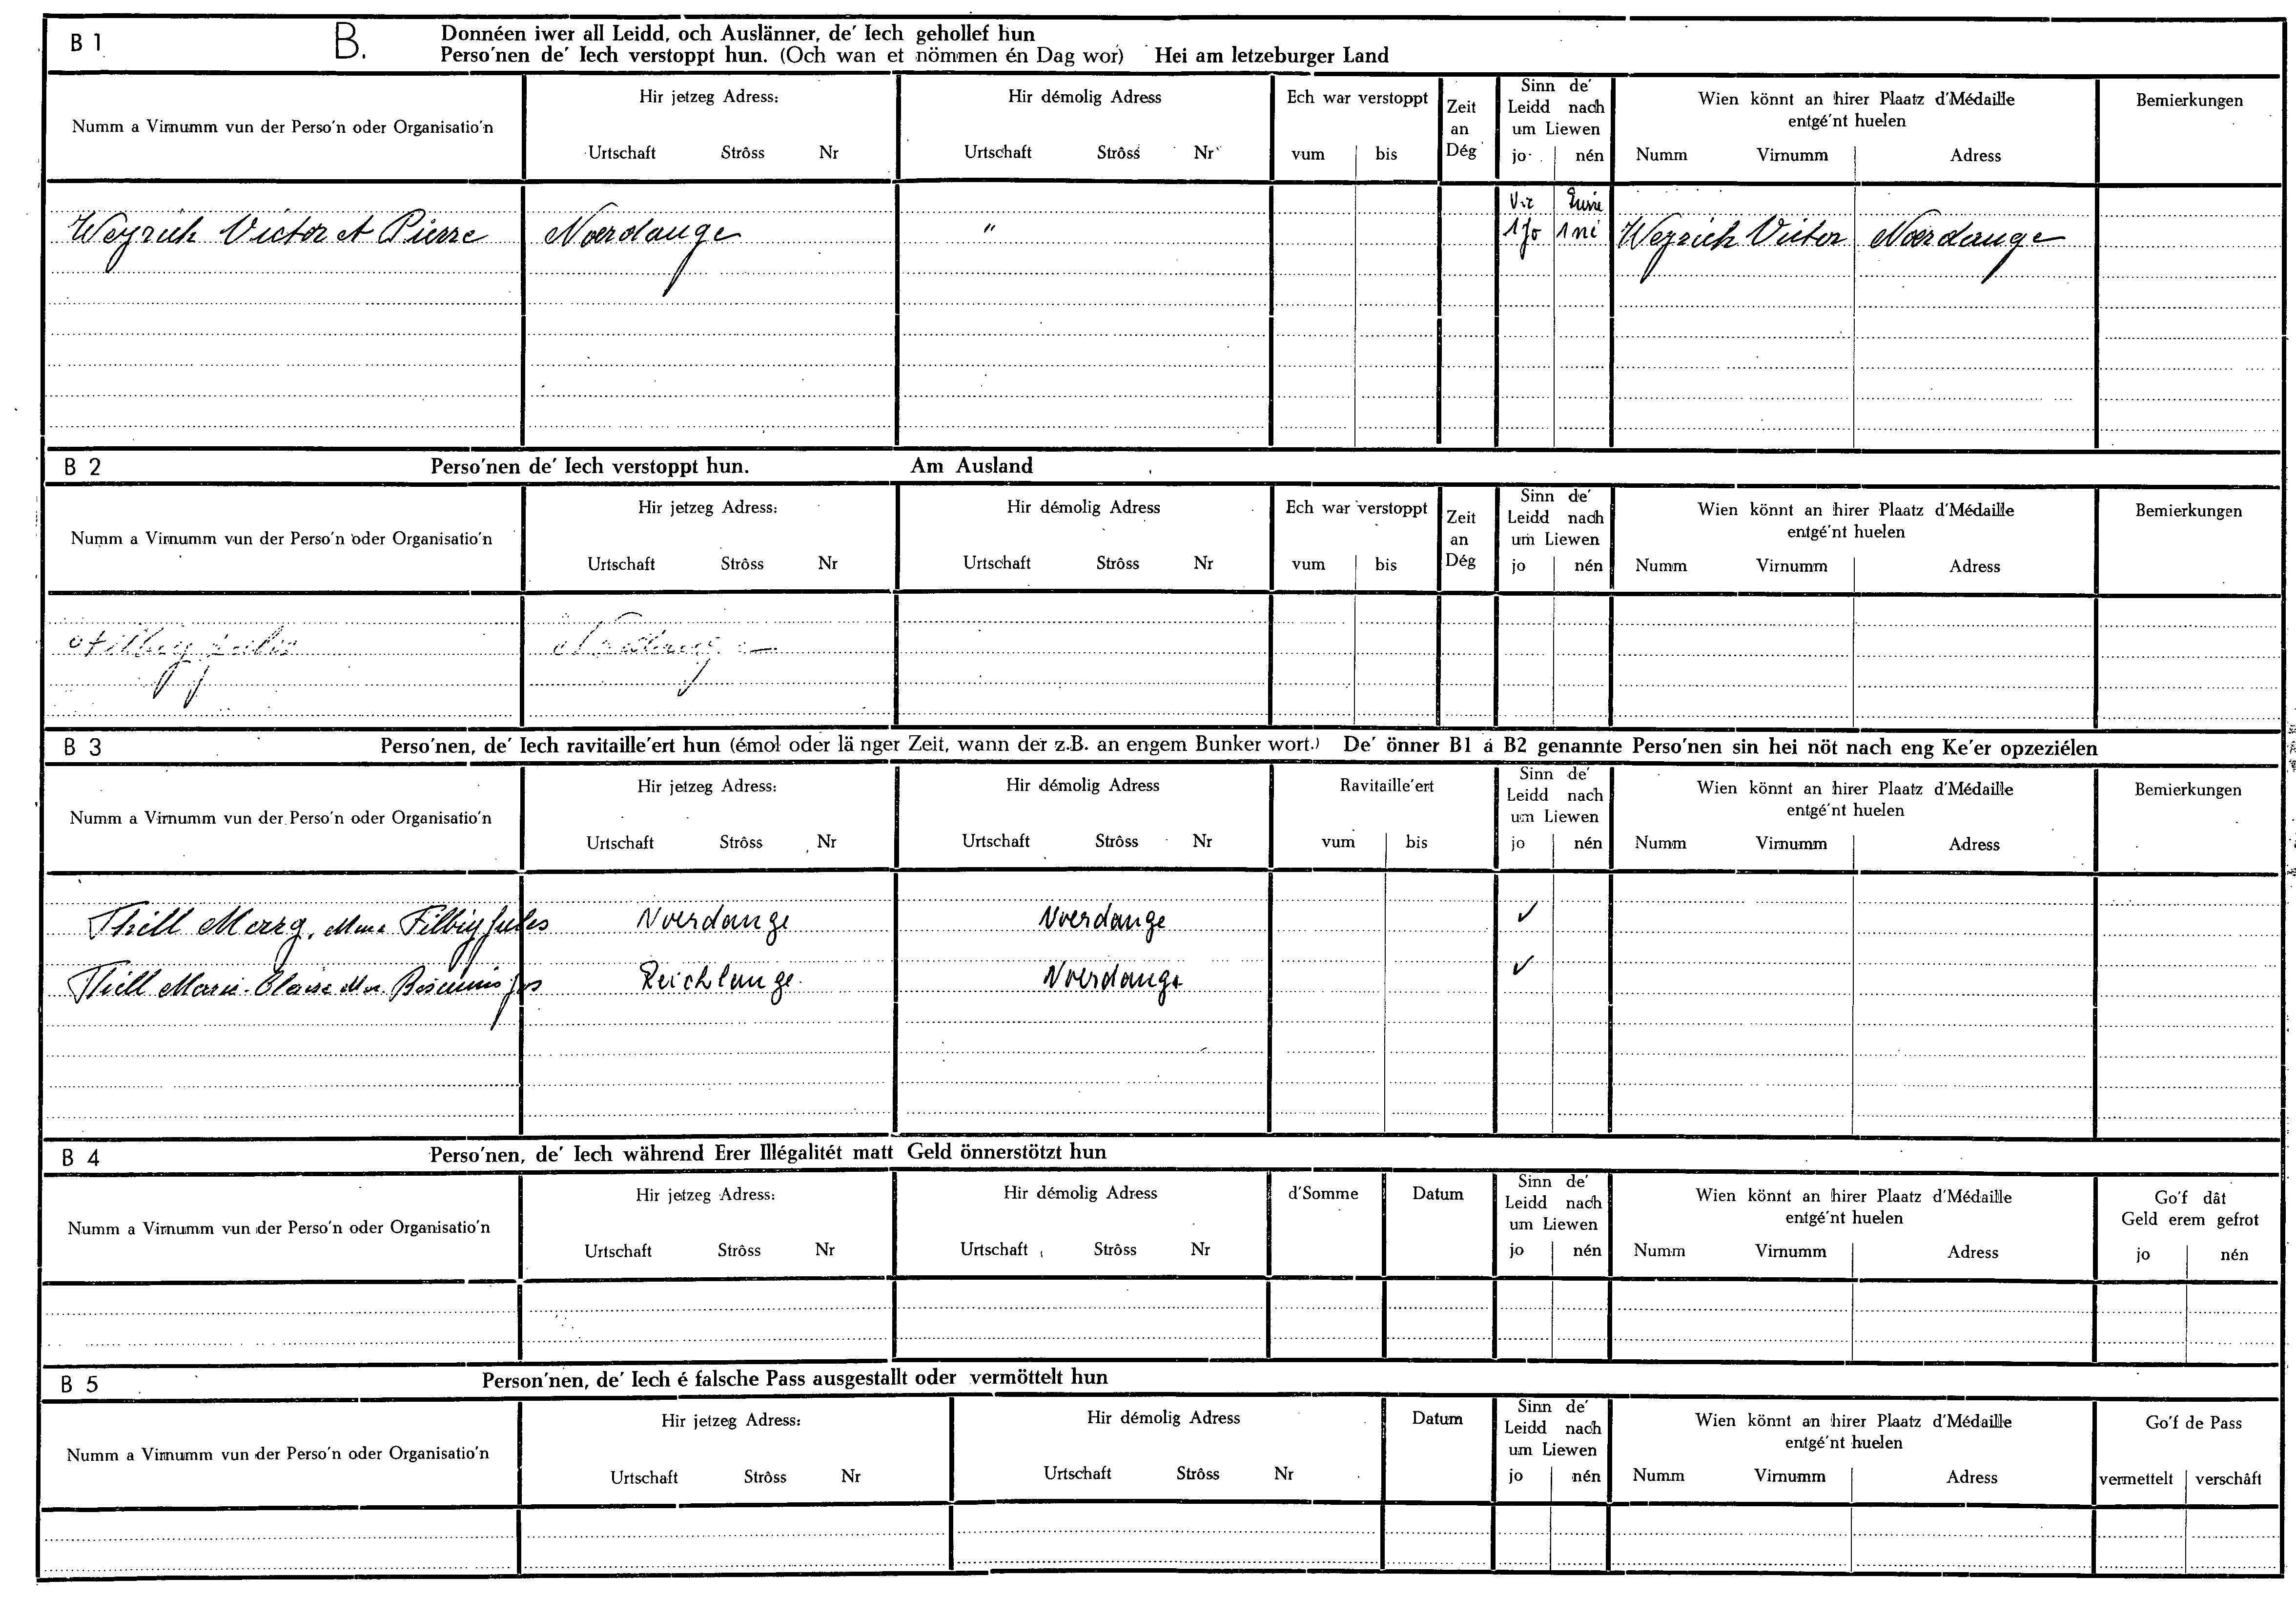 B 1 B. Donnéen iwer all Leidd, och Auslänner, de' Iech gehollef hun
Perso'nen de' Iech verstoppt hun. (Och wan et nömmen én Dag wor) Hei am letzeburger Land
Numm a Virnumm vun der Perso'n oder Organisatio'n
Hir jetzeg Adress:
Urtschaft Strôss Nr
Hir démolig Adress
Urtschaft Strôss Nr
Ech war verstoppt
vum bis
Zeit
an
Dég
Sinn de'
Leidd nach
um Liewen
jo nén
Wien könnt an hirer Plaatz d'Médaille
entgé'nt huelen
Numm Virnumm Adress
Bemierkungen
Weyrich Victor et Pierre Noerdange " 1 jo 1 né Weyrich Victor Noerdange
B 2 Perso'nen de' Iech verstoppt hun. Am Ausland
Numm a Virnumm vun der Perso'n oder Organisatio'n
Hir jetzeg Adress:
Urtschaft Strôss Nr
Hir démolig Adress
Urtschaft Strôss Nr
Ech war verstoppt
vum bis
Zeit
an
Dég
Sinn de'
Leidd nach
um Liewen
jo nén
Wien könnt an hirer Plaatz d'Médaille
entgé'nt huelen
Numm Virnumm Adress
Bemierkungen
B 3 Perso'nen, de' Iech ravitaille'ert hun (émol oder länger Zeit, wann der z.B. an engem Bunker wort.) De' önner B1 a B2 genannte Perso'nen sin hei nöt nach eng Ke'er opzeziélen
Numm a Virnumm vun der Perso'n oder Organisatio'n
Hir jetzeg Adress:
Urtschaft Strôss Nr
Hir démolig Adress
Urtschaft Strôss Nr
Ravitaille'ert
vum bis
Sinn de'
Leidd nach
um Liewen
jo nén
Wien könnt an hirer Plaatz d'Médaille
entgé'nt huelen
Numm Virnumm Adress
Bemierkungen
Thill Marg. Mme Filbig Jules Noerdange Noerdange ✓
Thill Marie-Claire Mme Jos Reichlange Noerdange ✓
B 4 Perso'nen, de' Iech während Erer Illégalitét matt Geld önnerstötzt hun
Numm a Virnumm vun der Perso'n oder Organisatio'n
Hir jetzeg Adress:
Urtschaft Strôss Nr
Hir démolig Adress
Urtschaft Strôss Nr
d'Somme
Datum
Sinn de'
Leidd nach
um Liewen
jo nén
Wien könnt an hirer Plaatz d'Médaille
entgé'nt huelen
Numm Virnumm Adress
Go'f dât
Geld erem gefrot
jo nén
B 5 Person'nen, de' Iech é falsche Pass ausgestallt oder vermöttelt hun
Numm a Virnumm vun der Perso'n oder Organisatio'n
Hir jetzeg Adress:
Urtschaft Strôss Nr
Hir démolig Adress
Urtschaft Strôss Nr
Datum
Sinn de'
Leidd nach
um Liewen
jo nén
Wien könnt an hirer Plaatz d'Médaille
entgé'nt huelen
Numm Virnumm Adress
Go'f de Pass
vermettelt verschâft